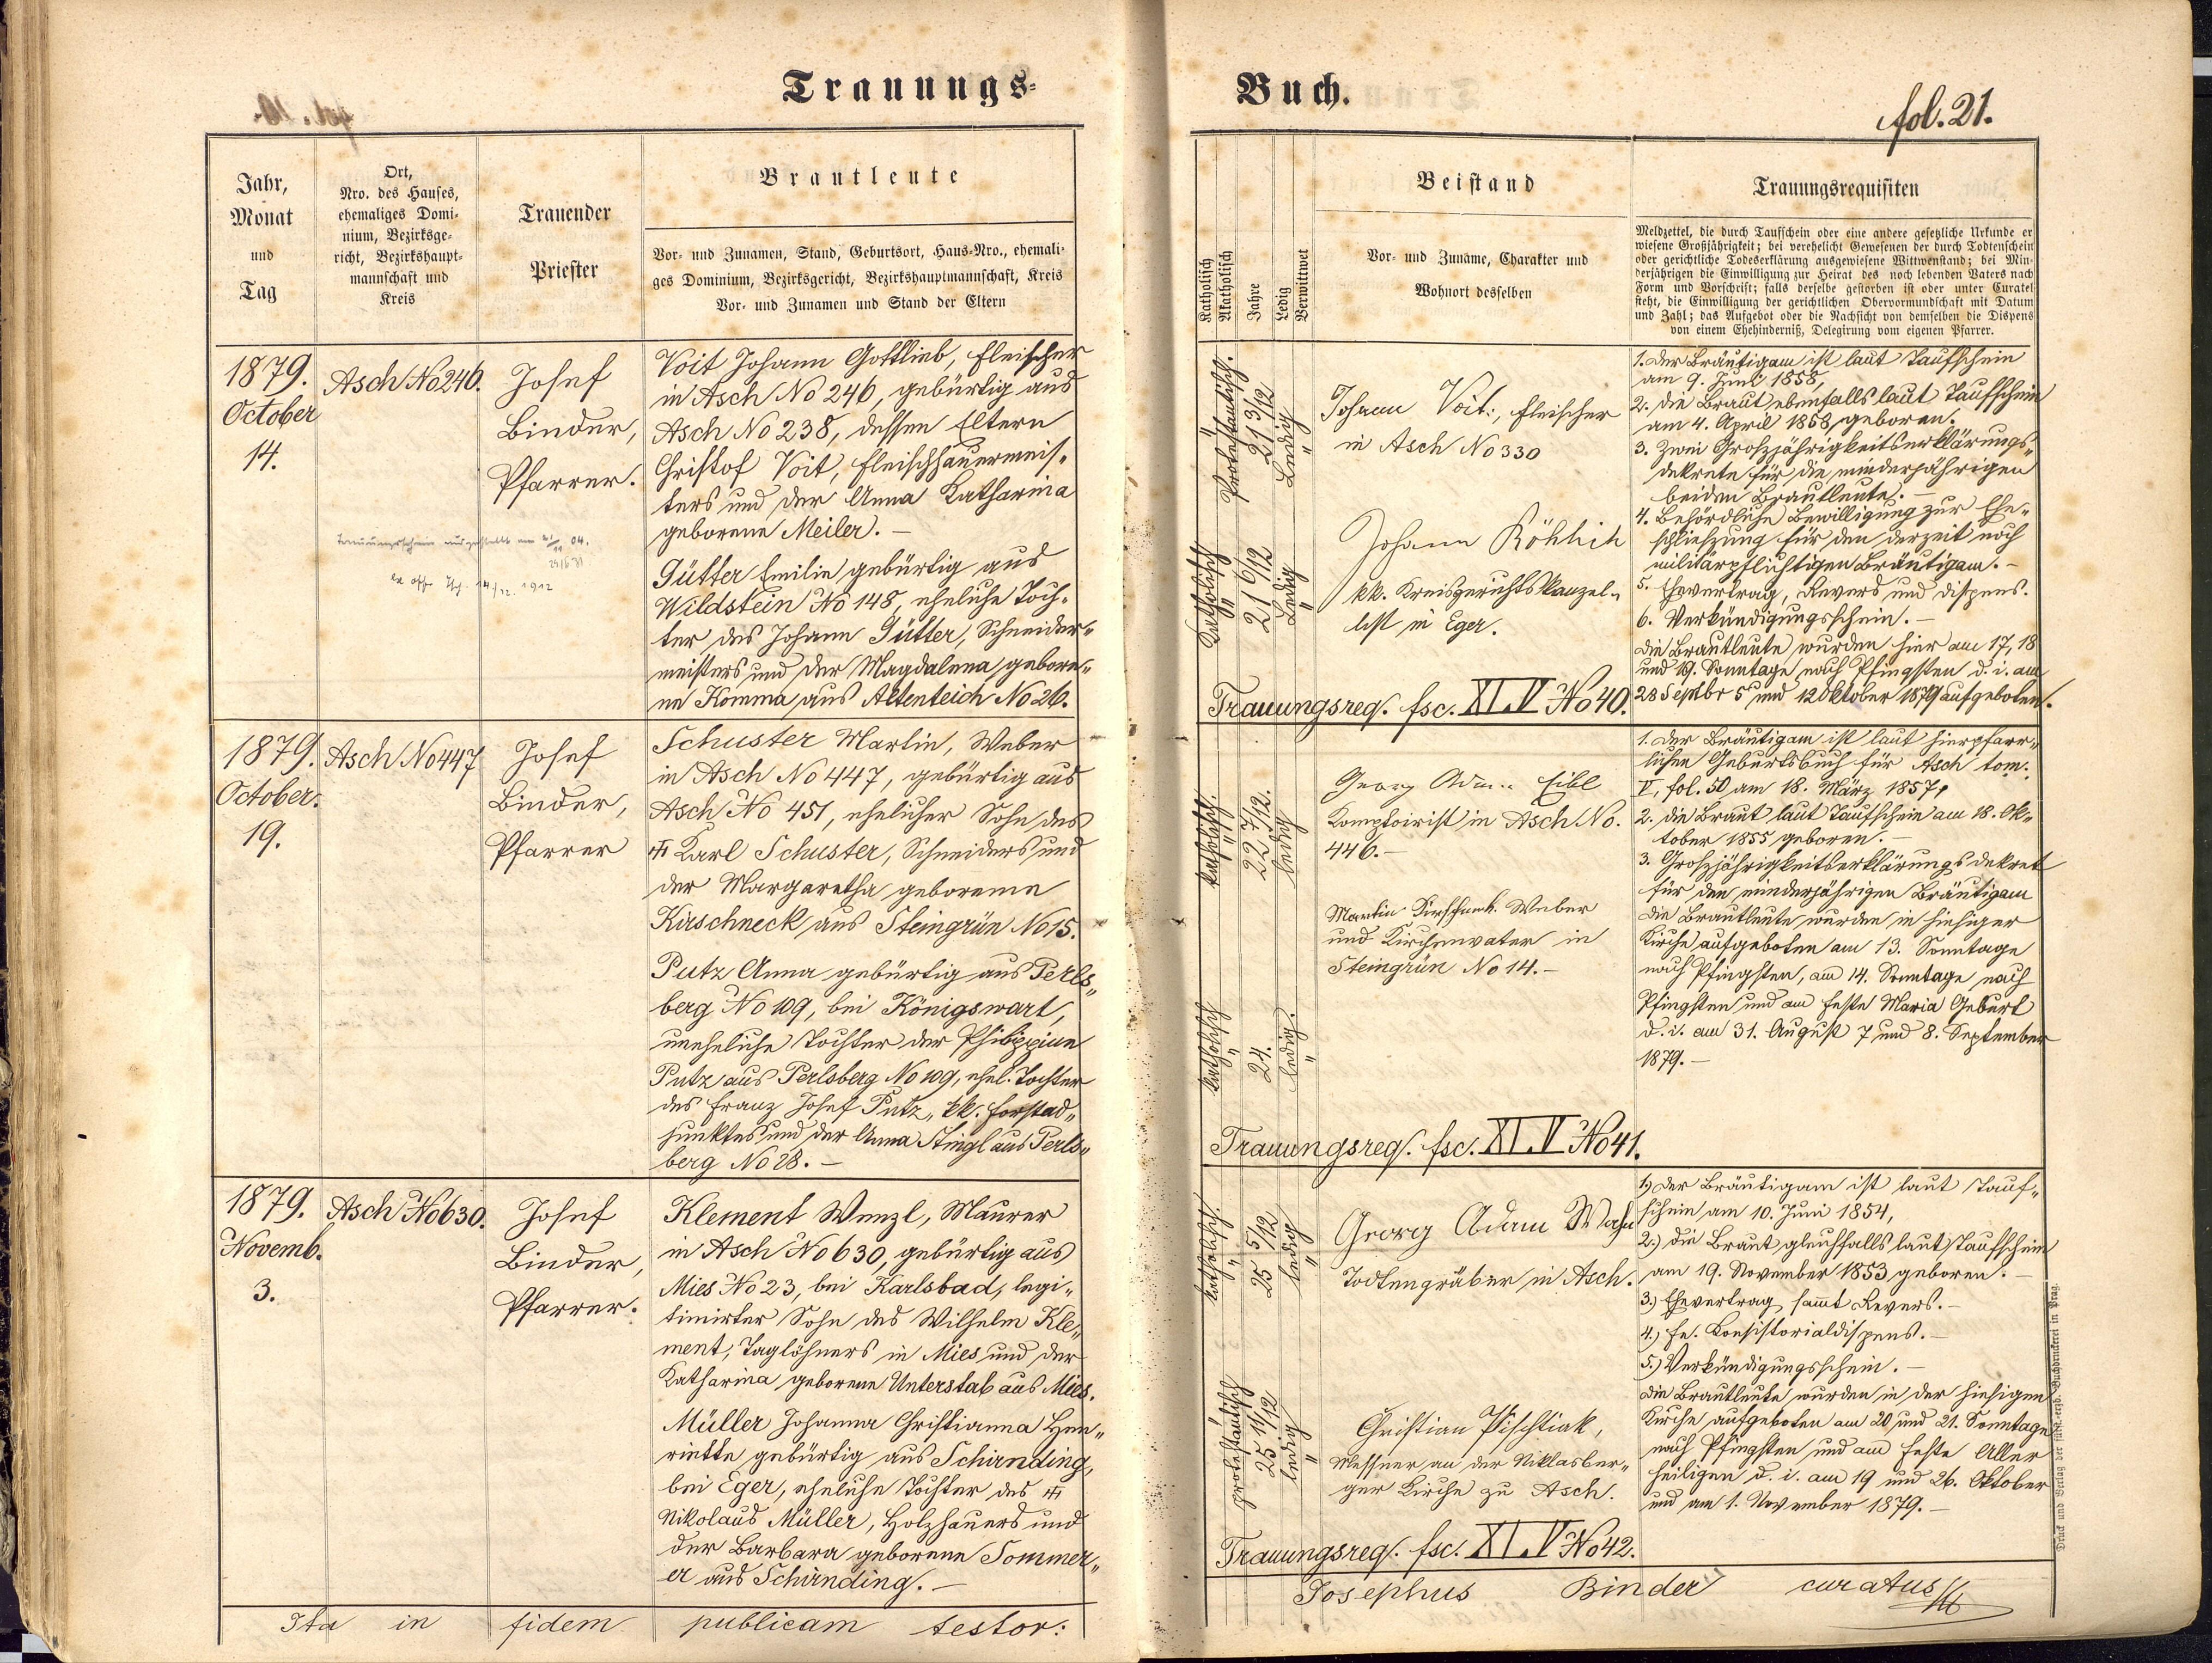 Trauungs-
Buch.
fol. 21.
Jahr,
Monat
und
Tag
Ort,
Nro. des Hauses,
ehemaliges Domi-
nium, Bezirksge-
richt, Bezirkshaupt-
mannschaft und
Kreis
Trauender
Priester
Brautleute
Vor- und Zunamen, Stand, Geburtsort, Haus-Nro., ehemali-
ges Dominium, Bezirksgericht, Bezirkshauptmannschaft, Kreis
Vor- und Zunamen und Stand der Eltern
Katholisch
Akatholisch
Jahre
Ledig
Verwittwet
Beistand
Vor- und Zuname, Charakter und
Wohnort desselben
Trauungsrequisiten
Meldzettel, die durch Taufschein oder eine andere gesetzliche Urkunde er
wiesene Großjährigkeit; bei verehelicht Gewesenen der durch Todtenschein
oder gerichtliche Todeserklärung ausgewiesene Wittwenstand; bei Min-
derjährigen die Einwilligung zur Heirat des noch lebenden Vaters nach
Form und Vorschrift; falls derselbe gestorben ist oder unter Curatel
steht, die Einwilligung der gerichtlichen Obervormundschaft mit Datum
und Zahl; das Aufgebot oder die Nachsicht von demselben die Dispens
von einem Ehehinderniß, Delegirung vom eigenen Pfarrer.
1879.
October
14.
Asch No 246.
Josef
Binder,
Pfarrer.
Trauungsschein ausgestellt am 21/11 04.
29/6 31
ex offo 14/12. 1912
Voit Johann Gottlieb, Fleischer
in Asch No 246, gebürtig aus
Asch No 238, dessen Eltern
Christof Voit, Fleischhauermeis„
ters und der Anna Katharina
geborene Meiler. –
Gütter Emilie gebürtig aus
Wildstein No 148, eheliche Toch„
ter des Johann Gütter, Schneider„
meisters und der Magdalena gebore„
ne Komma aus Altenteich No 26.
Protestantisch.
21 3/12
Ledig
"
Katholisch
"
21 6/12
Ledig
"
Johann Voit, Fleischer
in Asch No 330
Johann Röhlich
kk. Kreisgerichtskanzel„
list in Eger.
1. Der Bräutigam ist laut Taufschein
am 9. Juni 1858,
2. die Braut ebenfalls laut Taufschein
am 4. April 1858 geboren.
3. Zwei Grohsjährigkeitserklärungs„
dekrete für die minderjährigen
beiden Brautleute. –
4. Behördliche Bewilligung zur Ehe„
schliehsung für den derzeit noch
militärpflichtigen Bräutigam. –
5. Ehevertrag, Revers und Dispens.
6. Verkündigungsschein. –
Die Brautleute wurden hier am 17, 18
und 19. Sonntage nach Pfingsten d. i. am
28 Septbr 5 und 12 Oktober 1879 aufgeboten.
Trauungsreq. fsc. XI. V No 40.
1879.
October.
19.
Asch No 447
Josef
Binder,
Pfarrer
Schuster Martin, Weber
in Asch No 447, gebürtig aus
Asch No 451, ehelicher Sohn des
Karl Schuster, Schneiders und
der Margaretha geborene
Kirschneck aus Steingrün No 15.
Putz Anna gebürtig aus Perls„
berg No 109, bei Königswart,
uneheliche Tochter der Philippine
Putz aus Perlsberg No 109, ehel. Tochter
des Franz Josef Putz, kk. Forstad„
junktes und der Anna Stingl aus Perls„
berg No 28. –
katholisch.
"
22 7/12.
ledig
"
katholisch
"
24.
ledig.
"
Georg Adam Eibl
Komptoirist in Asch No.
446. –
Martin Kirschneck Weber
und Kirchenvater in
Steingrün No 14. –
1. Der Bräutigam ist laut hierpfarr„
lichen Geburtsbuch für Asch tom.
V, fol. 50 am 18. März 1857,
2. die Braut laut Taufschein am 18. Ok„
tober 1855 geboren. –
3. Grohsjährigkeitserklärungsdekret
für den minderjährigen Bräutigam
Die Brautleute wurden in hiesiger
Kirche aufgeboten am 13. Sonntage
nach Pfingsten, am 14. Sonntage nach
Pfingsten und am Feste Maria Geburt
d. i. am 31. August 7 und 8. September
1879. –
Trauungsreq. fsc. XI. V No 41.
1879.
Novemb.
3.
Asch No 630.
Josef
Binder,
Pfarrer.
Klement Wenzl, Maurer
in Asch No 630, gebürtig aus
Mies No 23, bei Karlsbad, legi„
timirter Sohn des Wilhelm Kle„
ment, Taglöhners in Mies und der
Katharina geborene Unterstab aus Mies.
Müller Johanna Christianna Hen„
riette gebürtig aus Schirnding,
bei Eger, eheliche Tochter des
Nikolaus Müller, Holzhauers und
der Barbara geborene Sommer„
er aus Schirnding. –
katholisch.
"
25 5/12
ledig
"
protestantisch
25 11/12
ledig
"
Georg Adam
Todtengräber in Asch.
Christian Pischtiak,
Messner an der Niklasber„
ger Kirche zu Asch.
1.) Der Bräutigam ist laut Tauf„
schein am 10. Juni 1854,
2.) Die Braut gleichfalls laut Taufschein
am 19. November 1853 geboren. –
3.) Ehevertrag sammt Revers. –
4.) fe. Konsistorialdispens. –
5.) Verkündigungsschein. –
Die Brautleute wurden in der hiesigen
Kirche aufgeboten am 20 und 21. Sonntage
nach Pfingsten und am Feste Aller
heiligen d. i. am 19 und 26. Oktober
und am 1. November 1879. –
Trauungsreq. fsc. XI. V No 42.
Ita in fidem publicam testor:
Josephus Binder curatus
Druck und Verlag der fürst.-erzb. Buchdruckerei in Prag.